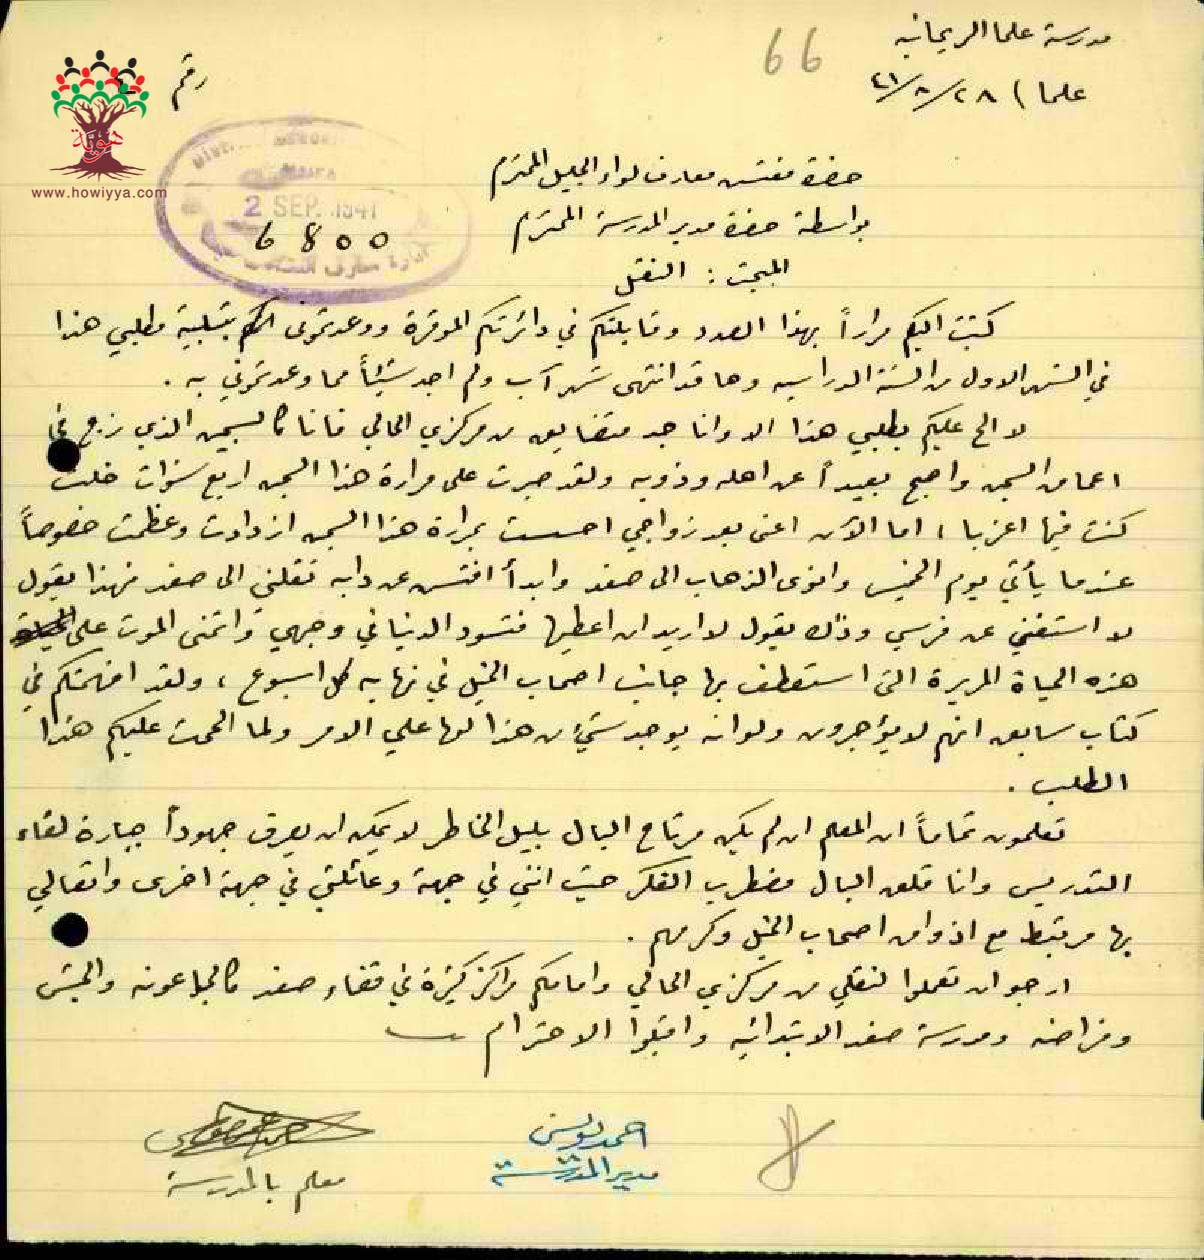 مدرسة علما الريحانيه
66
علما ) ٢٨/٨/٤١
رقم
هوية
www.howiyya.com
HAIFA
2 SEP. 1941
6800
حضرة مفتش معارف لواء الجليل المحترم
بواسطة حضرة مدير المدرسة المحترم
المبحث : النقل
كتبت اليكم مراراً بهذا الصدد وقابلتكم في دائرتكم الموقرة ووعدتموني بتلبية مطلبي هذا
في الشهر الاول من السنة الدراسيه وها قد انتهى شهر آب ولم اجد شيئاً مما وعدتموني به .
لا الح عليكم بطلبي هذا الا وانا جد متضايق من مركزي الحالي فانا كالسجين الذي زج في
اعماق السجن واصبح بعيداً عن اهله وذويه ولقد صبرت على مرارة هذا السجن اربع سنوات خلت
كنت فيها اعزبا ، اما الآن اعني بعد زواجي احسست بمرارة هذا السجن ازدادت وعظمت خصوصاً
عندما يأتي يوم الخميس وانوى الذهاب الى صفد وابدأ افتش عن دابه تقلني الى صفد فهذا يقول
لا استغني عن فرسي وذاك يقول لا اريد ان اعطيها فتسود الدنيا في وجهي واتمنى الموت على
هذه الحياة المريرة التي استعطف بها جانب اصحاب الخيل في نهاية كل اسبوع ، ولقد افهمتكم في
كتاب سابق انهم لا يؤجرون ولو انه يوجد شيء من هذا لهان علي الامر ولما الححت عليكم هذا
الطلب .
تعلمون تماماً ان المعلم ان لم يكن مرتاح البال بليل الخاطر لا يمكن ان يعرف جهوداً جبارة لقاء
التدريس وانا قلق البال مضطرب الفكر حيث انني في جهة وعائلتي في جهة اخرى واتصالي
بها مرتبط مع اذوان اصحاب الخيل وكرمهم .
ارجو ان تعملوا لنقلي من مركزي الحالي وامامكم مراكز كثيرة في قضاء صفد كالجاعونه والجش
وفراضه ومدرسة صفد الابتدائيه واقبلوا الاحترام
احمد يونس
مدير المدرسة
معلم بالمدرسة